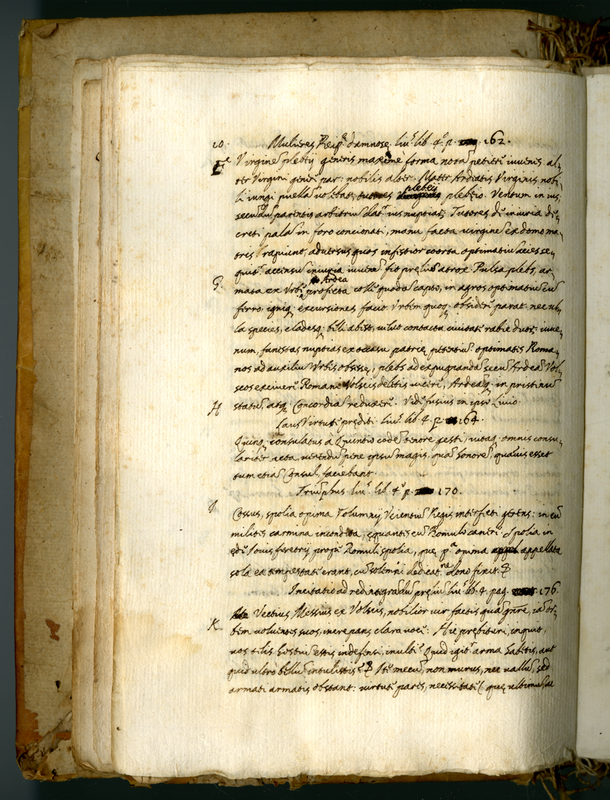 10. Mulieres Reip. damnosę. Liv. lib. 4. p. 162.
E Virginē plebeij generis maximè forma notā petiere iuvenes, al-
ter Virgini genere par: nobilis alter. Mater Ardeatis Virginis nobi-
li iungi puellā volebat, tutores plebeij plebeio. Ventum in ius
secundū parentis arbitriū datur ius nuptiarū. Tutores de iniuria de-
creti palàm in foro concionati, manu facta virginē ex domo ma-
tris rapiunt, adversus quos infestior coorta optimatiū acies se-
quitur accensū iniuria iuvenē, fit prœliū atrox. Pulsa plebs, ar-
G. mata ex Urbe Ardea profecta colle quodā capto, in agros optimatiū cū
ferro igniq; excursiones facit. Urbem quoq; obsidere parat: nec ul-
la species, cladesq; belli abest, veluti contacta civitate rabie duorū iuve-
num, funestas nuptias ex occasu patrię petentiū. optimates Roma-
nos ad auxiliū Urbis obsessę, plebs ad expugnandā secū Ardeā Vol-
scos excivere. Romani Volscis deletis victores, Ardeāq; in pristinū
H statū, atq; Concordiā reduxerunt. Vide fusius in ipso Livio.
Laus Virtute prediti. Liv. lib. 4. p. 164.
Quinq; consulatus à Quintio eodē tenore gesti, vitaq; omnis consu-
lariter acta verendū penè ipsū magis, quā honorē, quāvis esset
tum etiā Consul, faciebant.
Triumphus Liv. lib. 4. p. 170.
I Cossus, spolia opima Volumnij Veientiū Regis interfecti gerens: in eū
milites carmina incondita, equantes eū Romulo canere. Spolia in
ede Iovis feretrij prope Romuli spolia, que pa. opima appellata
sola ea tempestate erant, cū solemni dedicatne. dono fixit.
Incitatio ad redintegrandū preliū Liv. lib. 4. pag. 176.
K Vectius Messius ex Volscis, nobilior vir factis quā genere, iā or-
bem volventes suos, increpans clara voce: Hic prebituri, inquit,
vos telis hostiū estis indefensi, inulti? Quid igitur arma habetis, aut
quid ultro bellū intulistis? Ite mecū, non murus, nec vallū sed
armati armatis obstant: virtute pares, necessitate (que ultimū ac